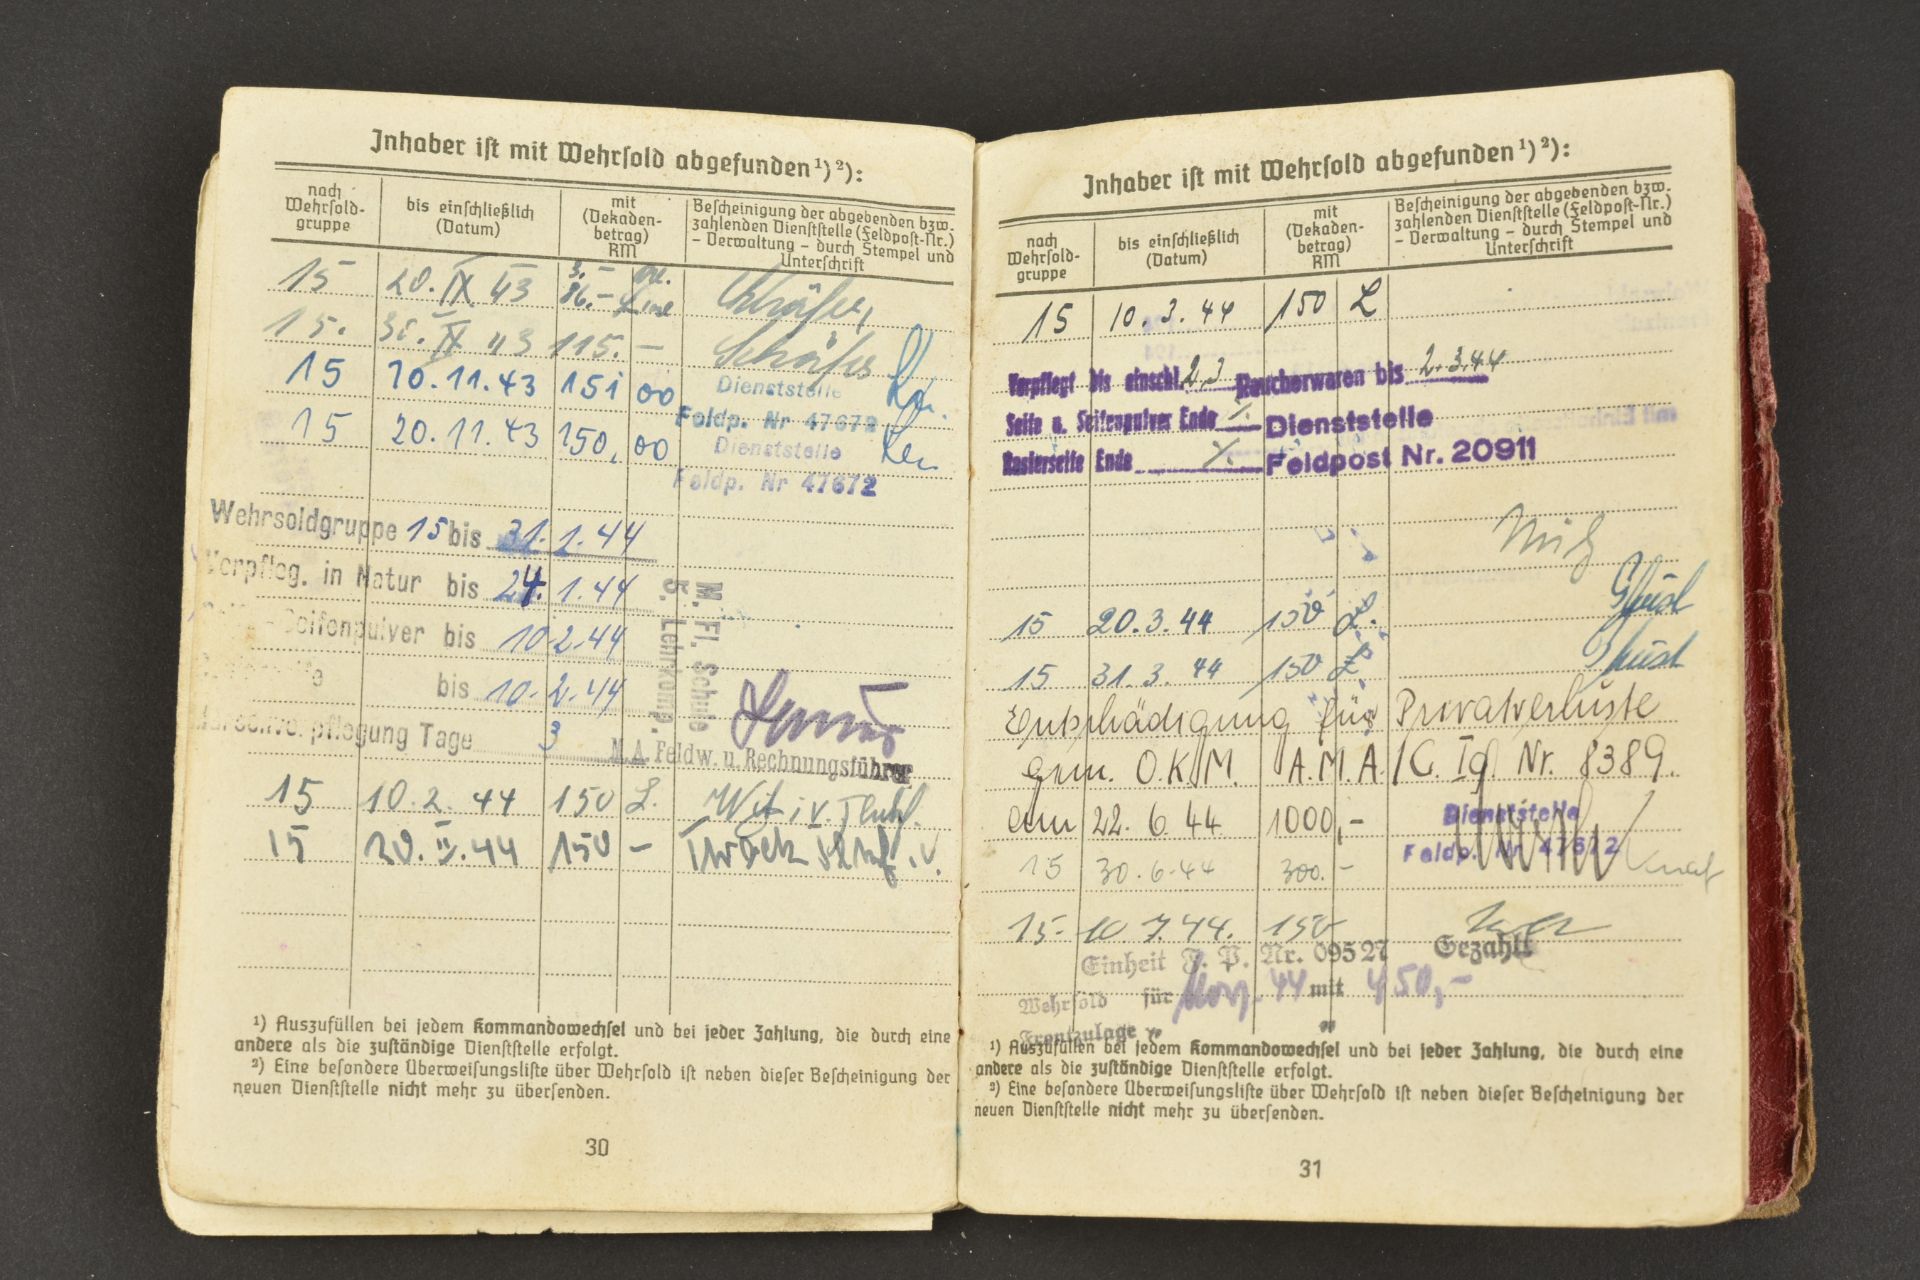 Inhaber ist mit Wehrsold abgefunden ¹) ²):
nach Wehrsold-gruppe
bis einschließlich (Datum)
mit (Dekaden-betrag) RM
Bescheinigung der abgebenden bzw. zahlenden Dienststelle (Feldpost-Nr.) – Verwaltung – durch Stempel und Unterschrift
15 20. IX 43 86.– Schäfer
15. 30. IX 43 115. – Schäfer
15 10.11.43 151 00 Dienststelle
Feldp. Nr 47672
15 20.11.43 150, 00 Dienststelle
Feldp. Nr 47672
Wehrsoldgruppe 15 bis 31.1.44
Verpfleg. in Natur bis 24.1.44
Seifenpulver bis 10.2.44
bis 10.2.44
pflegung Tage 3
M. Fl. Schule
5. Lehrkomp.
M.A. Feldw. u. Rechnungsführer
15 10.2. 44 150
15 20. II. 44 150 –
¹) Auszufüllen bei jedem Kommandowechsel und bei jeder Zahlung, die durch eine
andere als die zuständige Dienststelle erfolgt.
²) Eine besondere Überweisungsliste über Wehrsold ist neben dieser Bescheinigung der
neuen Dienststelle nicht mehr zu übersenden.
30
Inhaber ist mit Wehrsold abgefunden ¹) ²):
nach Wehrsold-gruppe
bis einschließlich (Datum)
mit (Dekaden-betrag) RM
Bescheinigung der abgebenden bzw. zahlenden Dienststelle (Feldpost-Nr.) – Verwaltung – durch Stempel und Unterschrift
15 10.3.44 150
Verpflegt bis einschl. 2.3 Raucherwaren bis 2.3.44
Seife u. Seifenpulver Ende Dienststelle
Rasierseife Ende Feldpost Nr. 20911
15 20.3.44 150
15 31.3.44 150
Entschädigung für Privatverluste
gem. O.K.M. A.M.A./C. Ig. Nr. 8389.
am 22.6.44 1000,– Dienststelle
Feldp. Nr 47672
15 30.6.44 300.–
15- 10.7.44. 150
Einheit F. P. Nr. 09527 Gezahlt
Wehrsold für 44 mit 450,–
Frontzulage " "
¹) Auszufüllen bei jedem Kommandowechsel und bei jeder Zahlung, die durch eine
andere als die zuständige Dienststelle erfolgt.
²) Eine besondere Überweisungsliste über Wehrsold ist neben dieser Bescheinigung der
neuen Dienststelle nicht mehr zu übersenden.
31